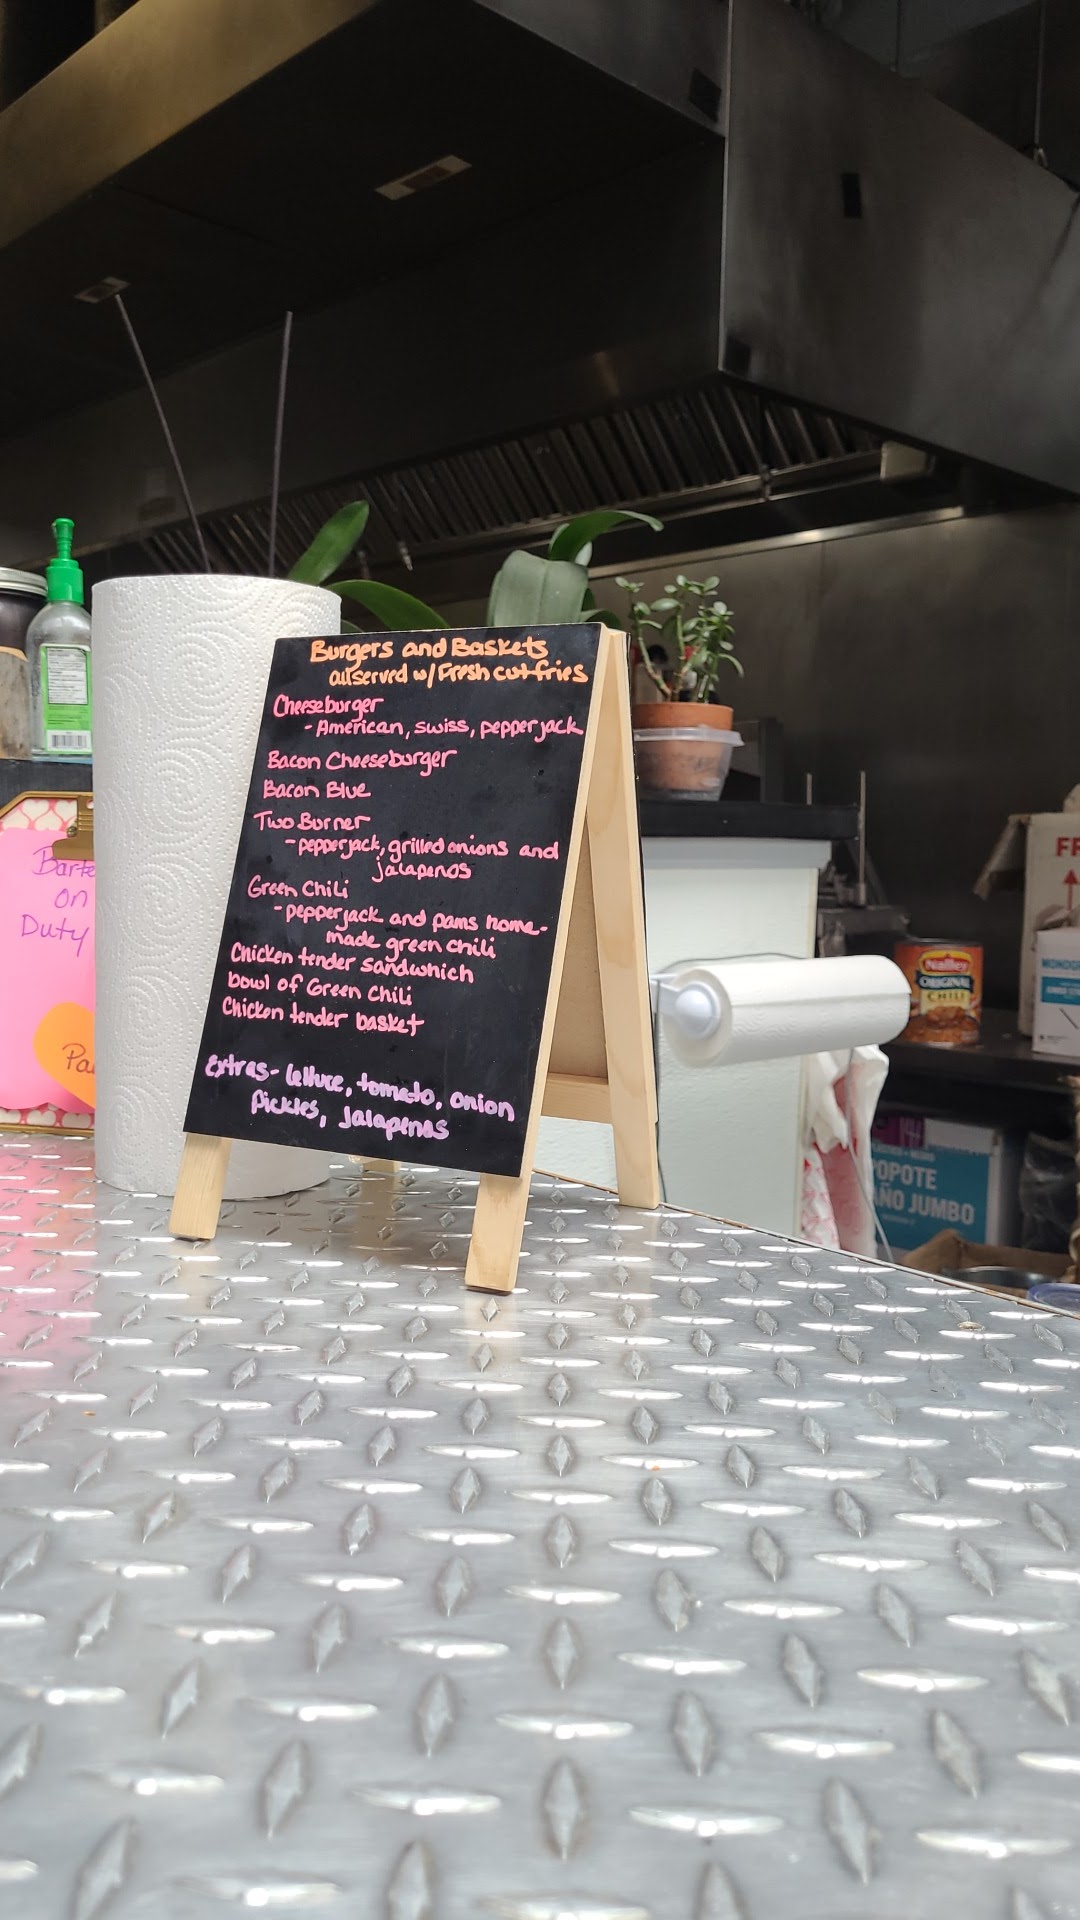 Burgers and Baskets
all served w/ Fresh cut fries
Cheeseburger
- American, swiss, pepper jack
Bacon Cheeseburger
Bacon Blue
Two Burner
- pepperjack, grilled onions and
jalapenos
Green Chili
- pepperjack and pams home-
made green chili
Chicken tender sandwhich
bowl of Green Chili
Chicken tender basket
Extras- lettuce, tomato, onion
Pickles, Jalapenos
Barte
on
Duty
Pa
Nalley
ORIGINAL
CHILI
FR
MONOG
POPOTE
AÑO JUMBO